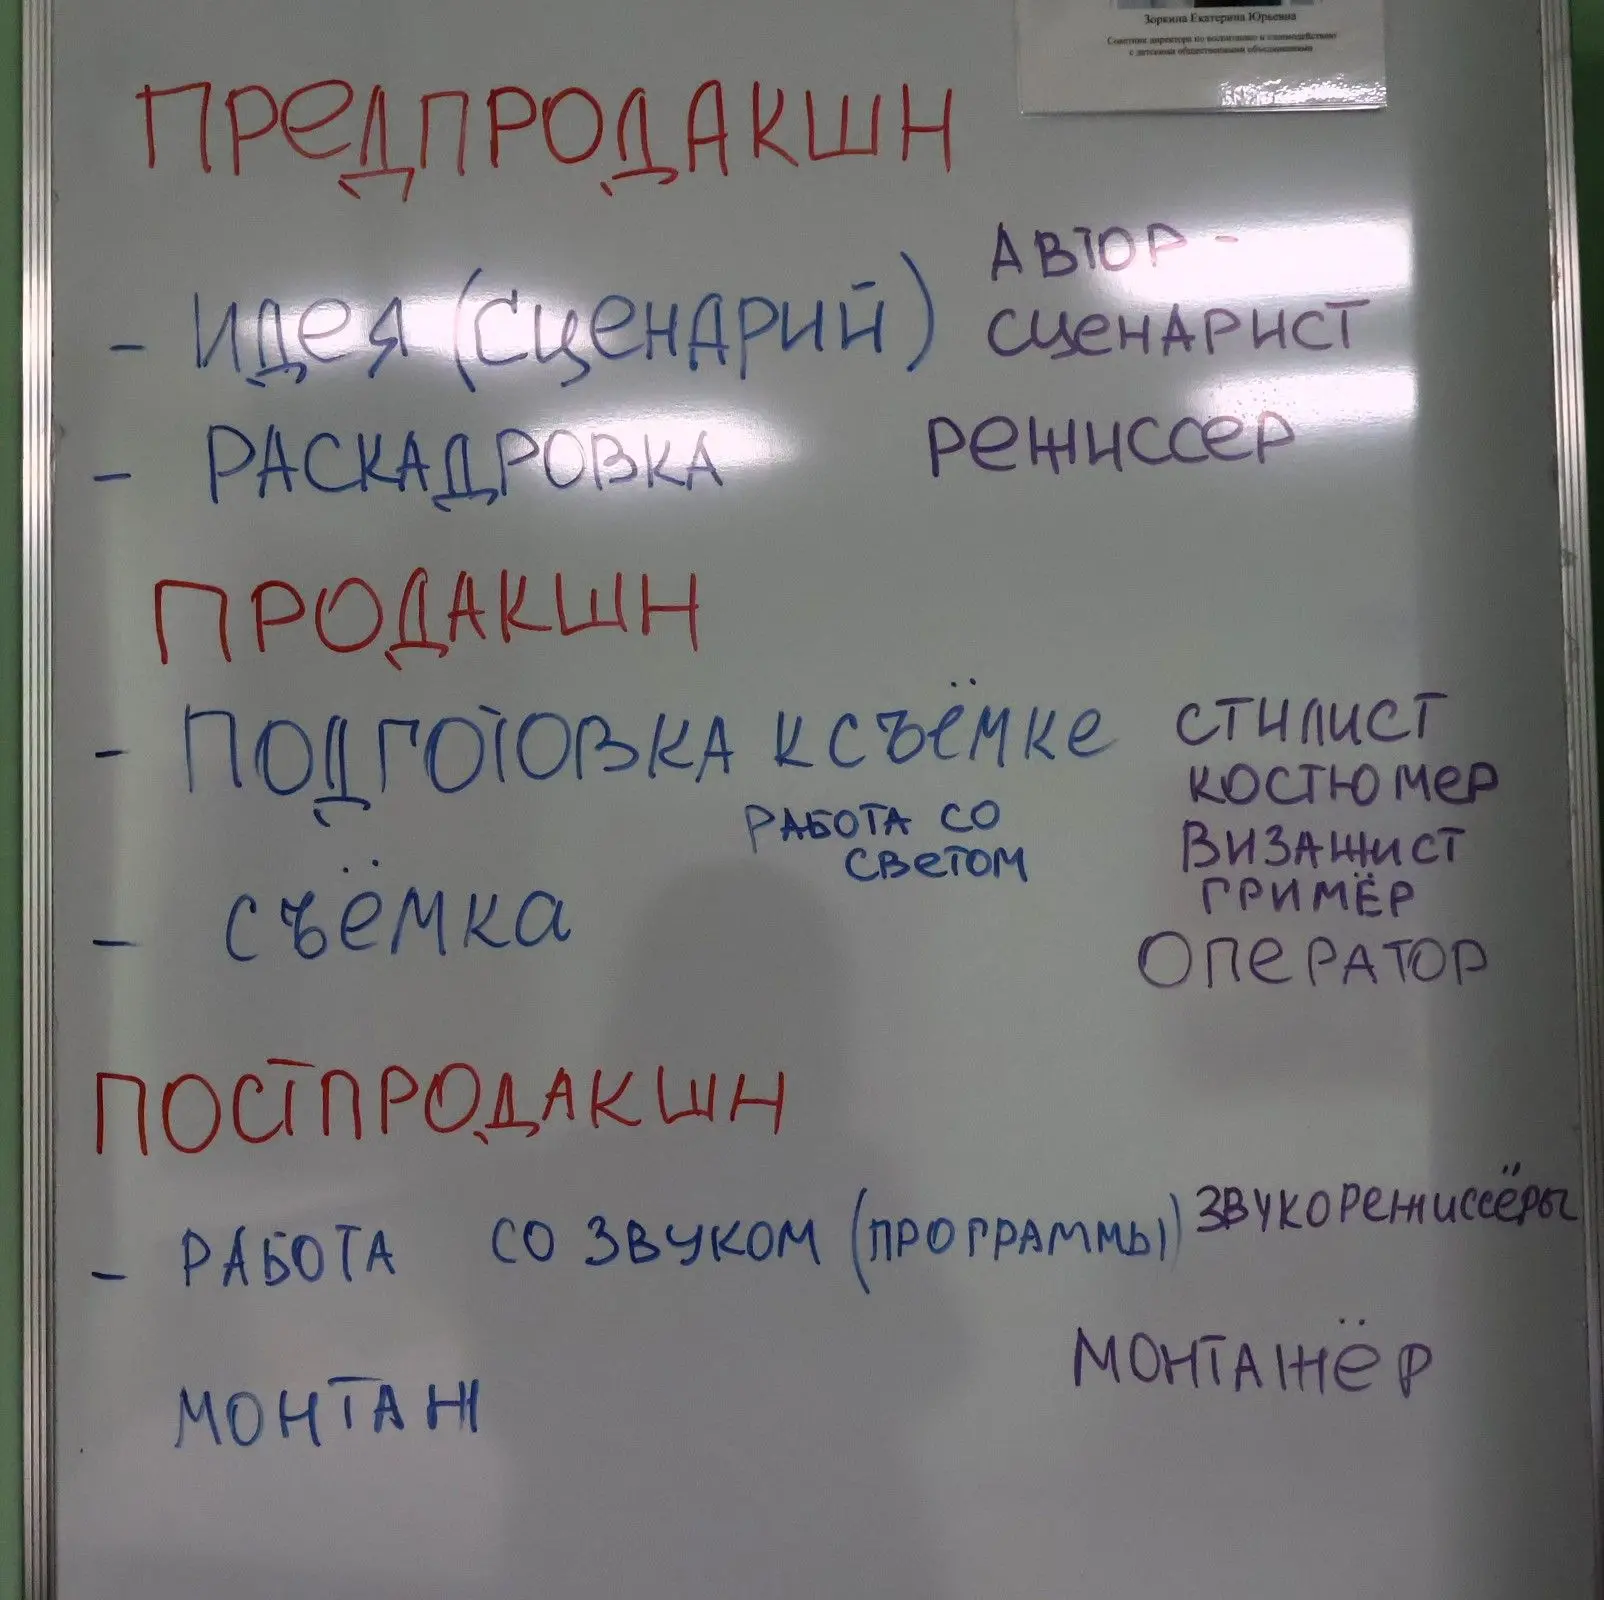 Зоркина Екатерина Юрьевна
Советник директора по воспитанию и взаимодействию
с детскими общественными объединениями
ПРЕДПРОДАКШН
- ИДЕЯ (СЦЕНАРИЙ) АВТОР -
СЦЕНАРИСТ
- РАСКАДРОВКА РЕЖИССЕР
ПРОДАКШН
- ПОДГОТОВКА К СЪЁМКЕ СТИЛИСТ
КОСТЮМЕР
РАБОТА СО
СВЕТОМ ВИЗАЖИСТ
ГРИМЁР
- СЪЁМКА ОПЕРАТОР
ПОСТПРОДАКШН
- РАБОТА СО ЗВУКОМ (ПРОГРАММЫ) ЗВУКОРЕЖИССЁРЫ
МОНТАЖ МОНТАЖЁР